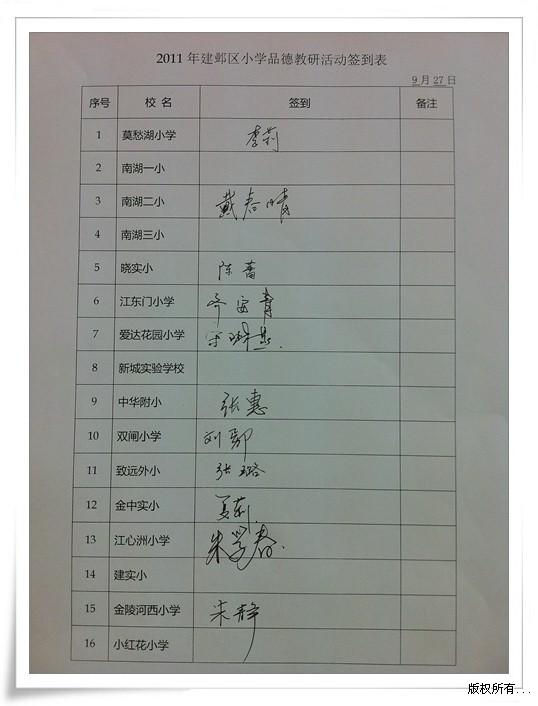 2011 年建邺区小学品德教研活动签到表
9 月 27 日
序号 校 名 签到 备注
1 莫愁湖小学 李莉
2 南湖一小
3 南湖二小 戴春晴
4 南湖三小
5 晓实小 陈蕾
6 江东门小学
7 爱达花园小学
8 新城实验学校
9 中华附小 张惠
10 双闸小学
11 致远外小 张璐
12 金中实小 夏莉
13 江心洲小学 朱学春
14 建实小
15 金陵河西小学 朱静
16 小红花小学
版权所有...